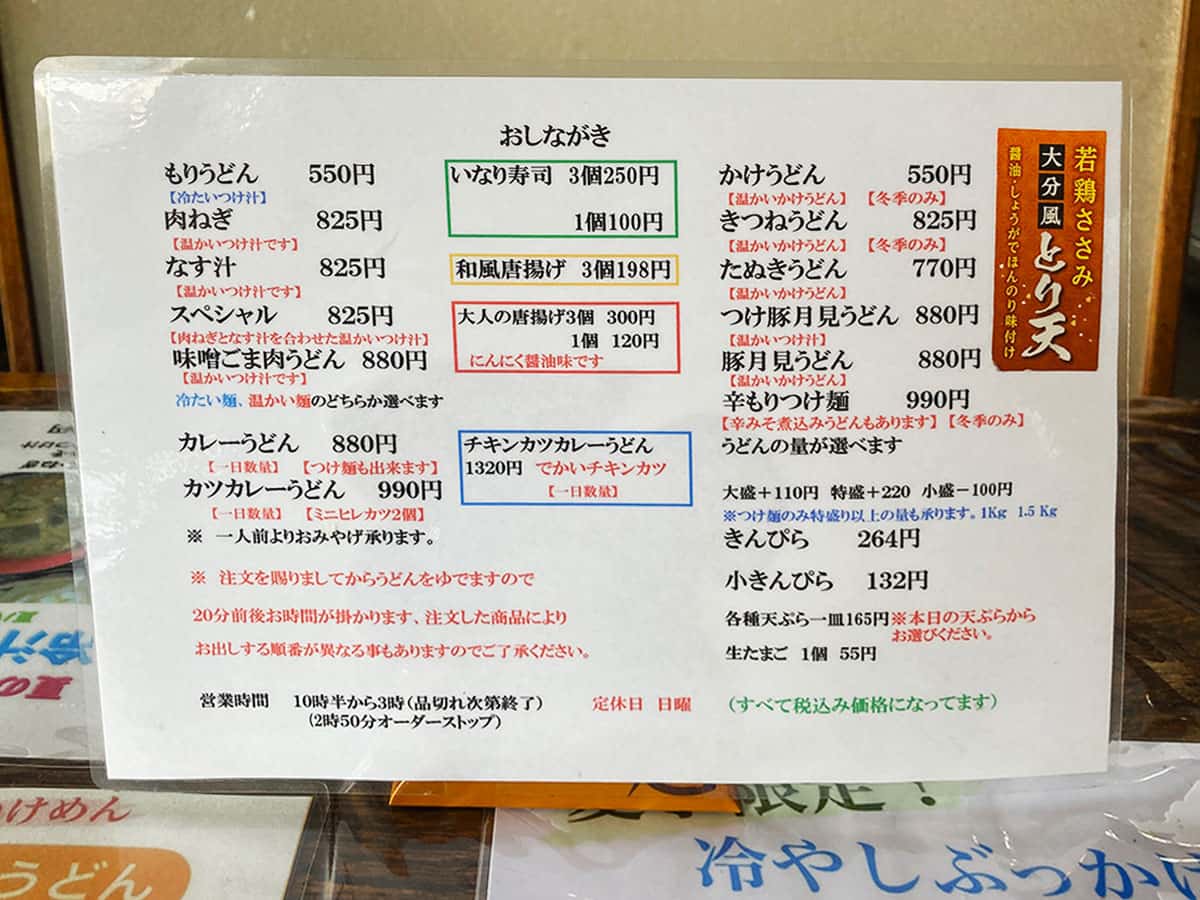 おしながき
もりうどん 550円
【冷たいつけ汁】
肉ねぎ 825円
【温かいつけ汁です】
なす汁 825円
【温かいつけ汁です】
スペシャル 825円
【肉ねぎとなす汁を合わせた温かいつけ汁】
味噌ごま肉うどん 880円
【温かいつけ汁です】
冷たい麺、温かい麺のどちらか選べます
カレーうどん 880円
【一日数量】 【つけ麺も出来ます】
カツカレーうどん 990円
【一日数量】 【ミニヒレカツ2個】
※ 一人前よりおみやげ承ります。
※ 注文を賜りましてからうどんをゆでますので
20分前後お時間が掛かります、注文した商品により
お出しする順番が異なる事もありますのでご了承ください。
いなり寿司 3個250円
1個100円
和風唐揚げ 3個198円
大人の唐揚げ3個 300円
1個 120円
にんにく醤油味です
チキンカツカレーうどん
1320円 でかいチキンカツ
【一日数量】
かけうどん 550円
【温かいかけうどん】 【冬季のみ】
きつねうどん 825円
【温かいかけうどん】 【冬季のみ】
たぬきうどん 770円
【温かいかけうどん】
つけ豚月見うどん 880円
【温かいつけ汁】
豚月見うどん 880円
【温かいかけうどん】
辛もりつけ麺 990円
【辛みそ煮込みうどんもあります】【冬季のみ】
うどんの量が選べます
大盛+110円 特盛+220 小盛-100円
※つけ麺のみ特盛り以上の量も承ります。1Kg 1.5Kg
きんぴら 264円
小きんぴら 132円
各種天ぷら一皿165円※本日の天ぷらから
お選びください。
生たまご 1個 55円
営業時間 10時半から3時(品切れ次第終了) 定休日 日曜 (すべて税込み価格になってます)
(2時50分オーダーストップ)
若鶏ささみ
大分風
とり天
醤油・しょうがでほんのり味付け
冷汁
夏の
けめん
うどん
限定!
冷やしぶっか